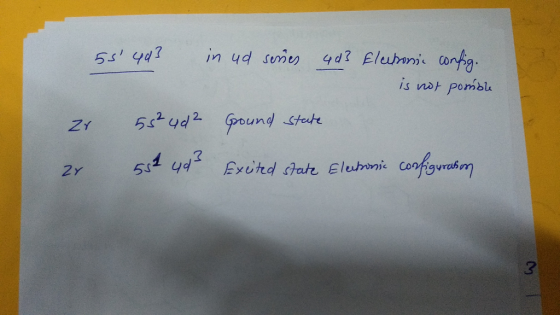 5s¹ 4d³ in 4d series 4d³ Electronic config.
is not possible
Zr 5s² 4d² Ground state
Zr 5s¹ 4d³ Excited state Electronic configuration
3